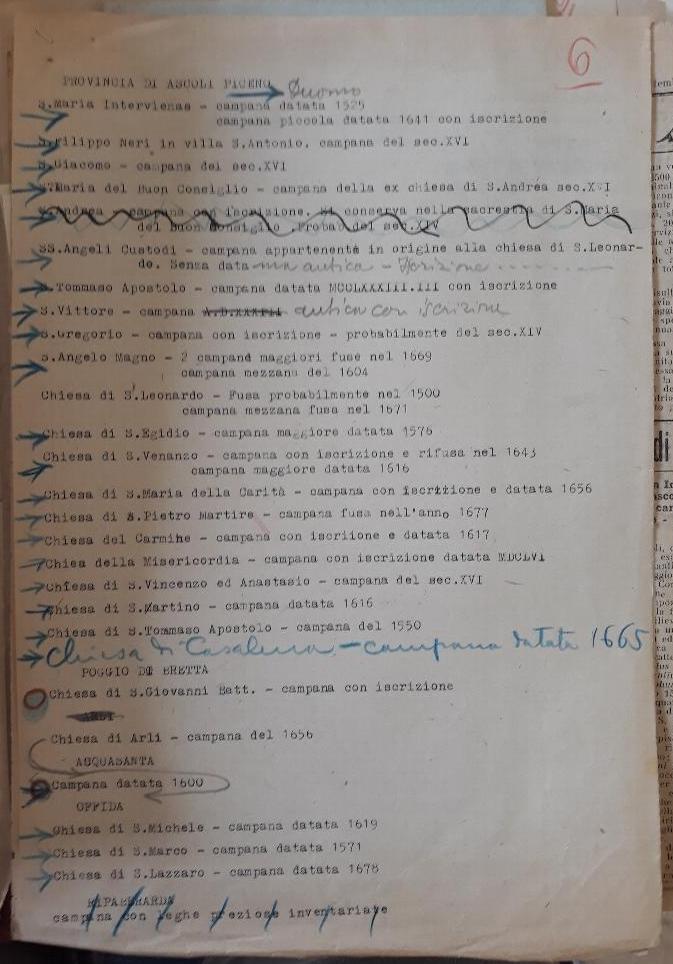 6
PROVINCIA DI ASCOLI PICENO Duomo
S.Maria Intervienas - campana datata 1525
campana piccola datata 1641 con iscrizione
S.Filippo Neri in villa S.Antonio. campana del sec.XVI
S.Giacomo - campana del sec.XVI
S.Maria del Buon Consiglio - campana della ex chiesa di S.Andrea sec.XVI
S.Andrea - campana con iscrizione. Si conserva nella sacrestia di S.Maria
del Buon Consiglio .Probab.del sec.XIV
SS.Angeli Custodi - campana appartenente in origine alla chiesa di S.Leonar-
do. Senza data ma antica - Iscrizione
S.Tommaso Apostolo - campana datata MCCLXXXIII.III con iscrizione
S.Vittore - campana A.D.XXXVII antica con iscrizione
S.Gregorio - campana con iscrizione - probabilmente del sec.XIV
S.Angelo Magno - 2 campane maggiori fuse nel 1669
campana mezzana del 1604
Chiesa di S.Leonardo - Fusa probabilmente nel 1500
campana mezzana fusa nel 1671
Chiesa di S.Egidio - campana maggiore datata 1576
Chiesa di S.Venanzo - campana con iscrizione e rifusa nel 1643
campana maggiore datata 1616
Chiesa di S.Maria della Carità - campana con iscrizione e datata 1656
Chiesa di S.Pietro Martire - campana fusa nell'anno 1677
Chiesa del Carmine - campana con iscriione e datata 1617
Chiea della Misericordia - campana con iscrizione datata MDCLVI
Chiesa di S.Vincenzo ed Anastasio - campana del sec.XVI
Chiesa di S.Martino - campana datata 1616
Chiesa di S.Tommaso Apostolo - campana del 1550
Chiesa di Casalena - campana datata 1665
POGGIO DI BRETTA
Chiesa di S.Giovanni Batt. - campana con iscrizione
ARLI
Chiesa di Arli - campana del 1656
ACQUASANTA
Campana datata 1600
OFFIDA
Chiesa di S.Michele - campana datata 1619
Chiesa di S.Marco - campana datata 1571
Chiesa di S.Lazzaro - campana datata 1678
RIPABERARDA
campana con leghe preziose inventariate